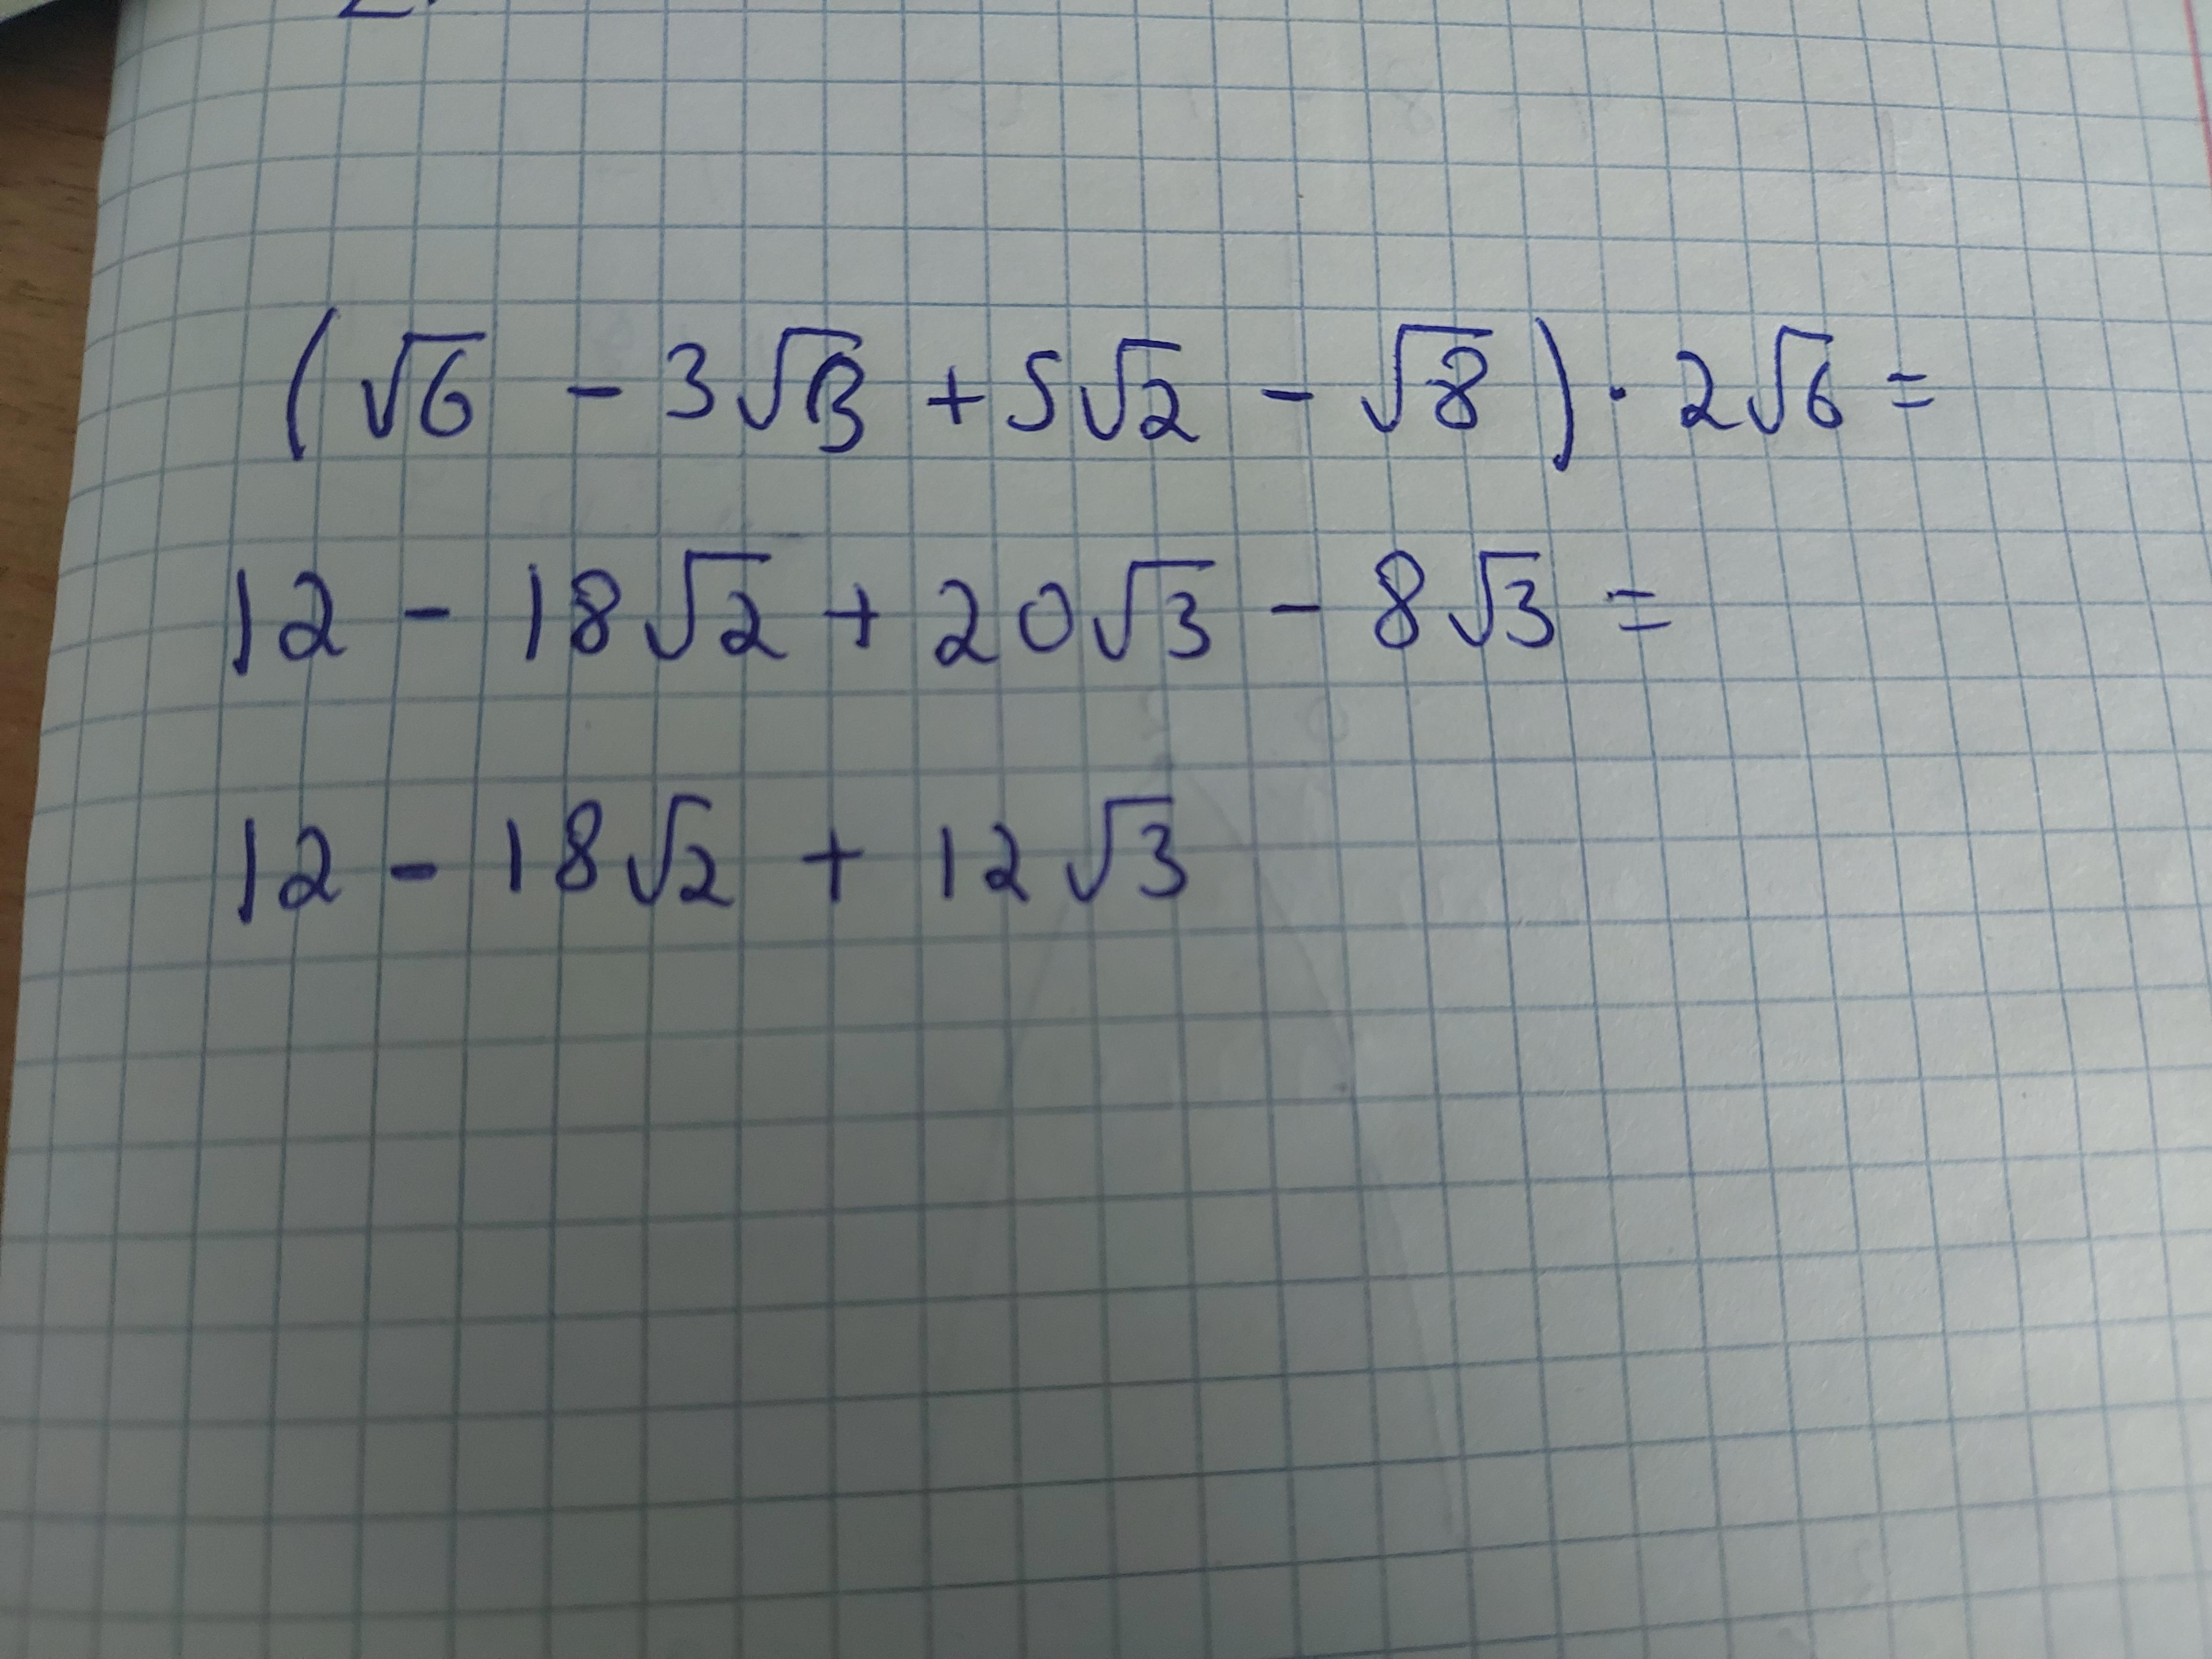 (√6 - 3√3 + 5√2 - √8) · 2√6 =
12 - 18√2 + 20√3 - 8√3 =
12 - 18√2 + 12√3